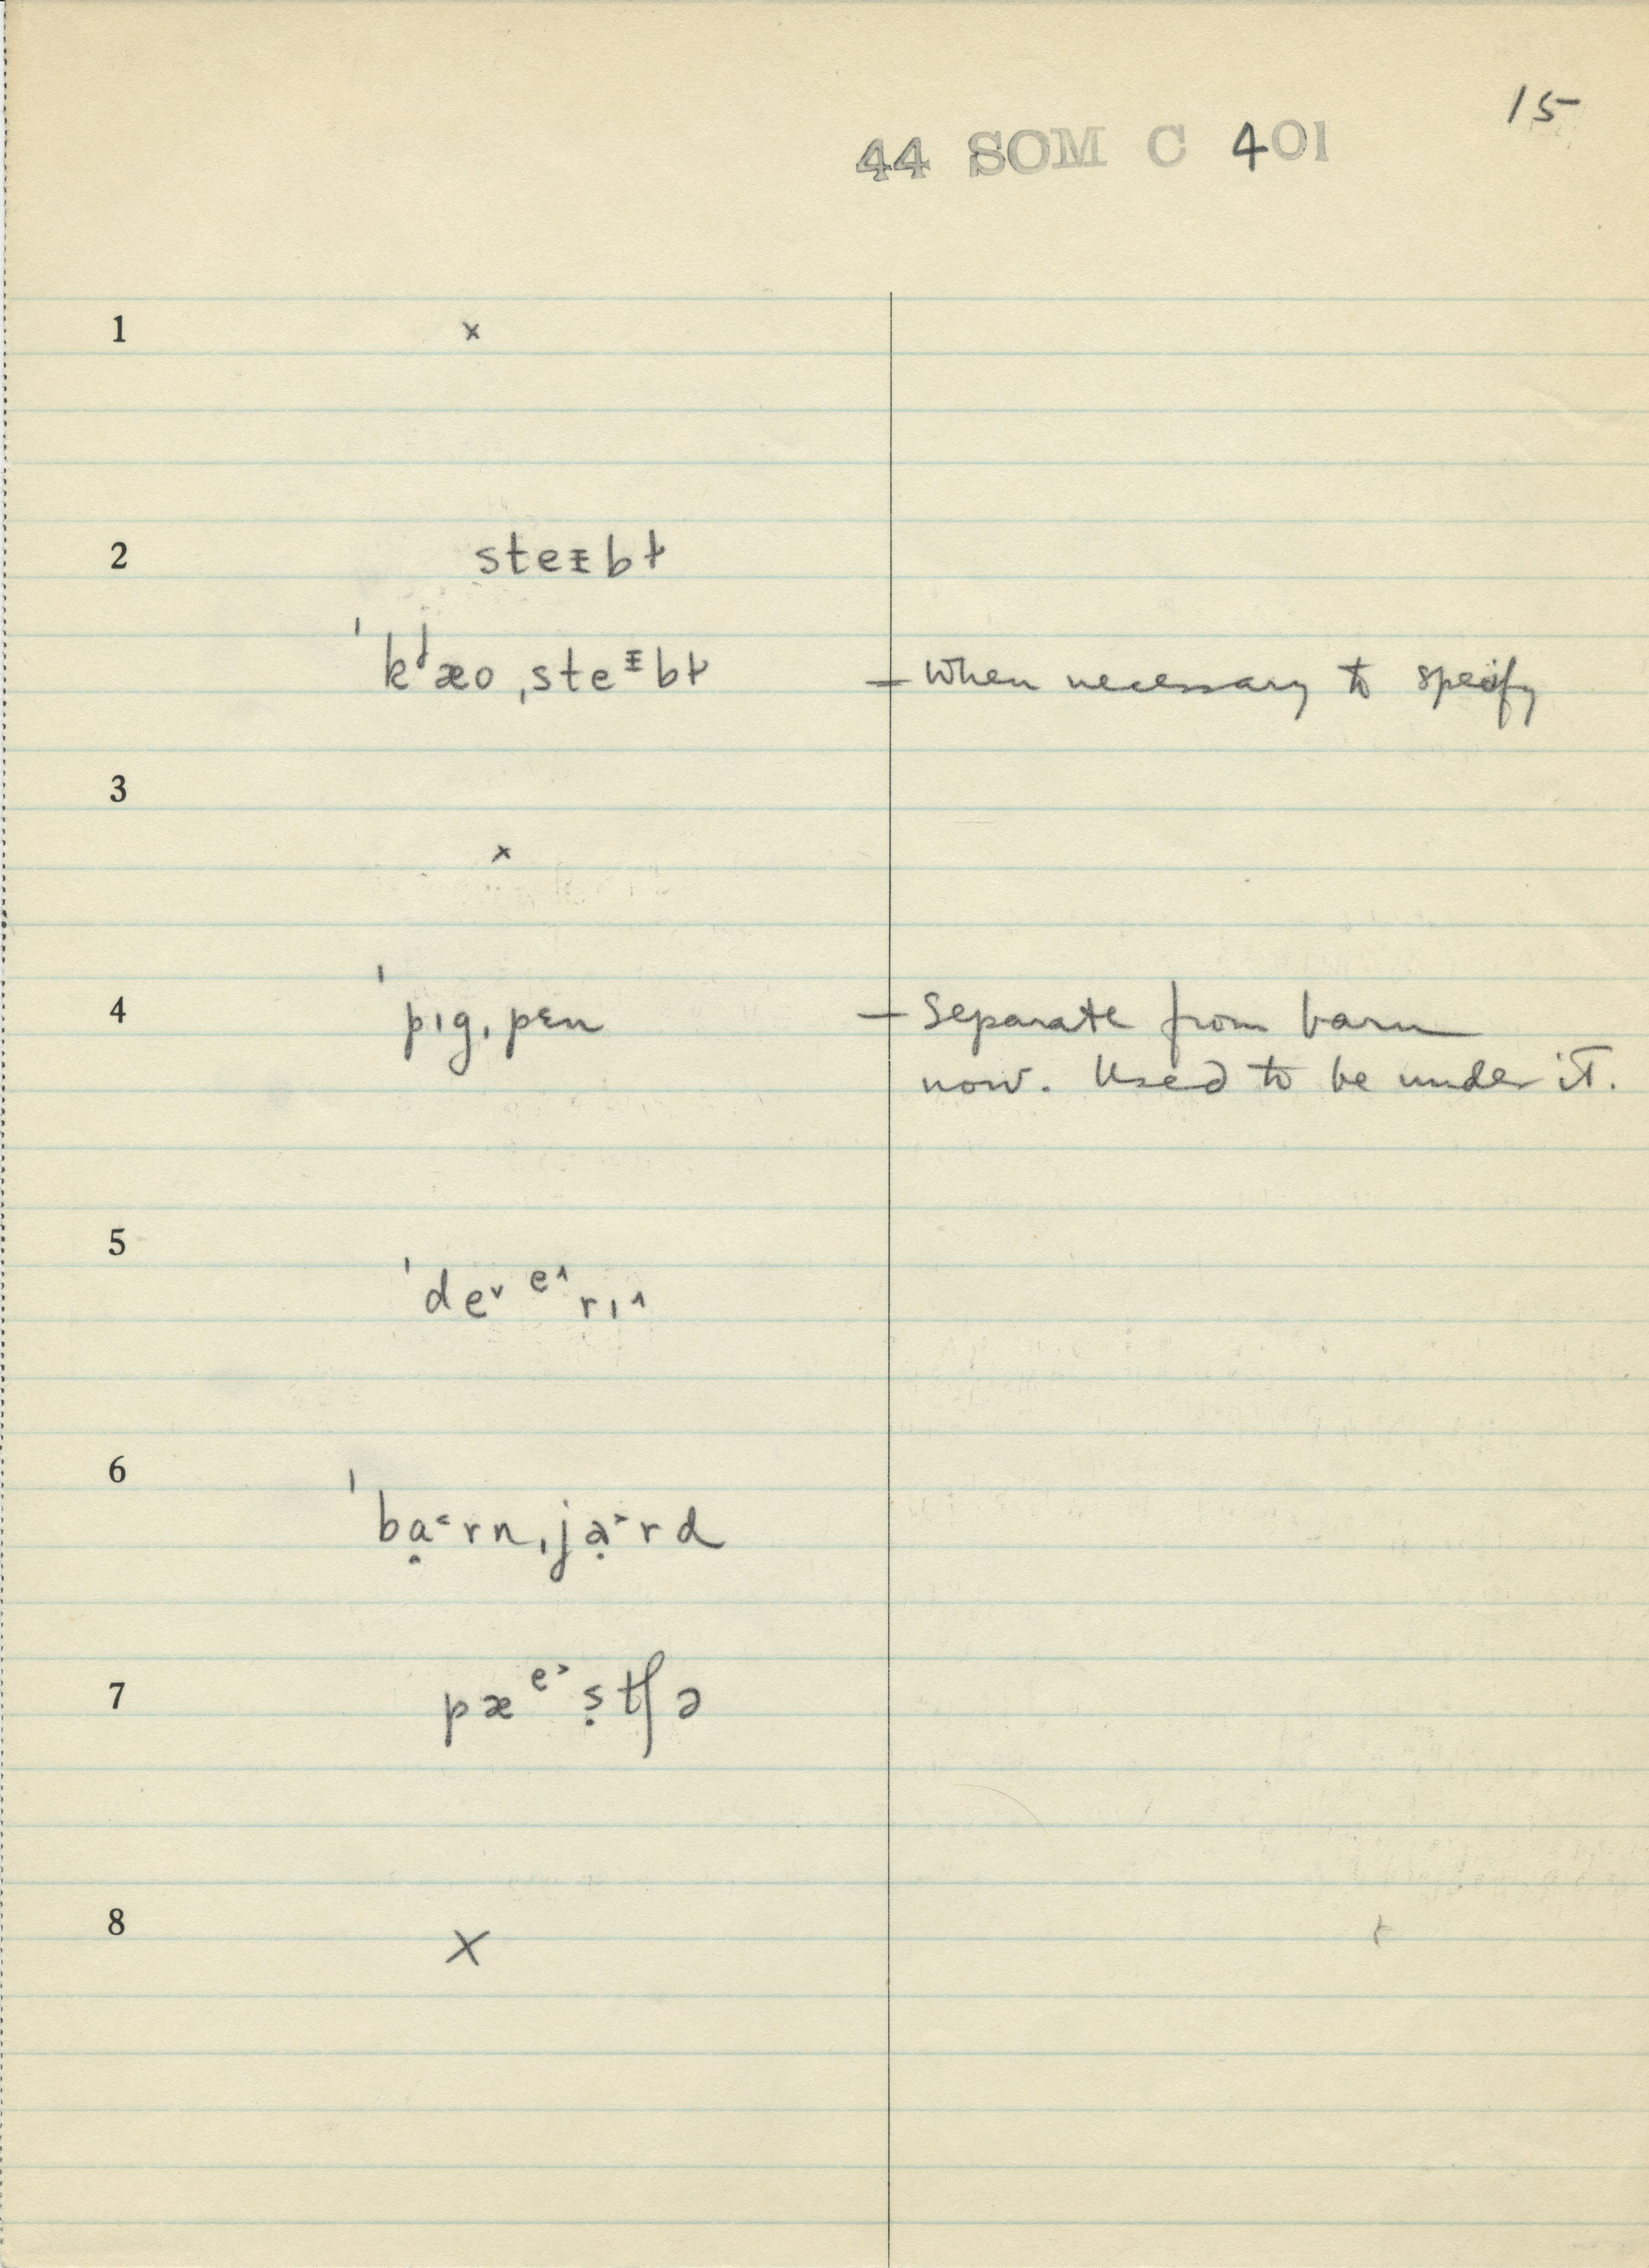 15
44 SOM C 401
1 x
2 steᵻbɫ
ˈkʲæo ˌsteᵻbɫ – when necessary to specify
3
x
4 ˈpɪgˌpɛn – separate from barn
now. Used to be under it.
5
ˈde˅ᵉ˄rɪ˄
6
ˈbạ˂rnˌjạ˃rd
7 pæᵉ˃ṣtʃə
8
x